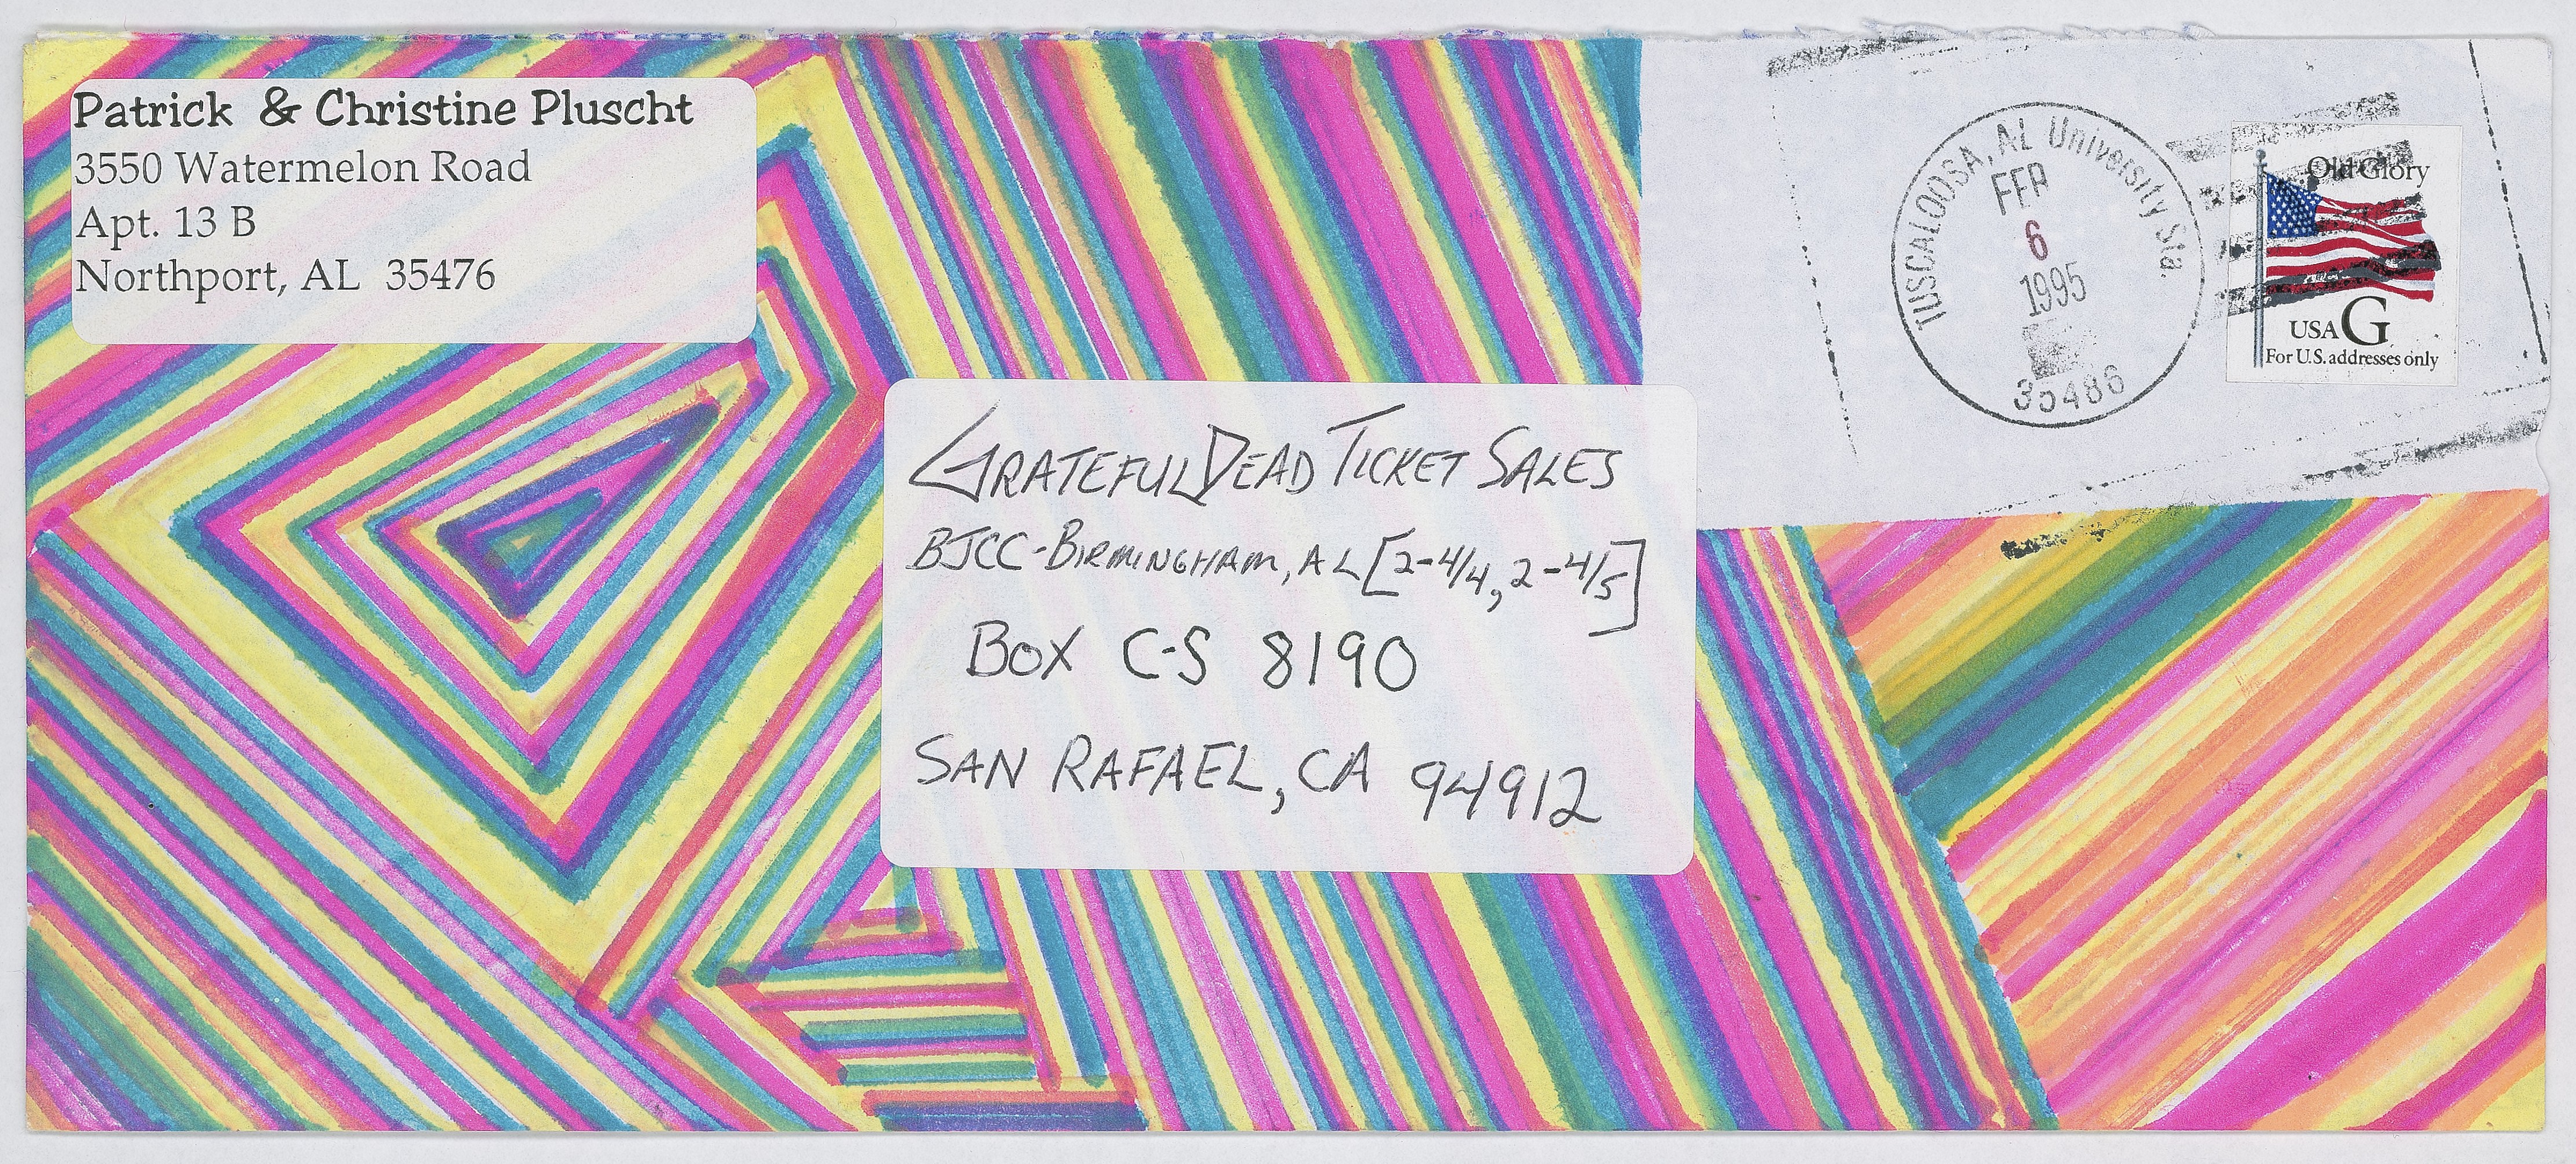 Patrick & Christine Pluscht
3550 Watermelon Road
Apt. 13 B
Northport, AL 35476
TUSCALOOSA, AL University Sta.
FEB
6
1995
35486
Old Glory
USA G
For U.S. addresses only
GRATEFUL DEAD TICKET SALES
BJCC-BIRMINGHAM, AL [2-4/4, 2-4/5]
BOX C-S 8190
SAN RAFAEL, CA 94912